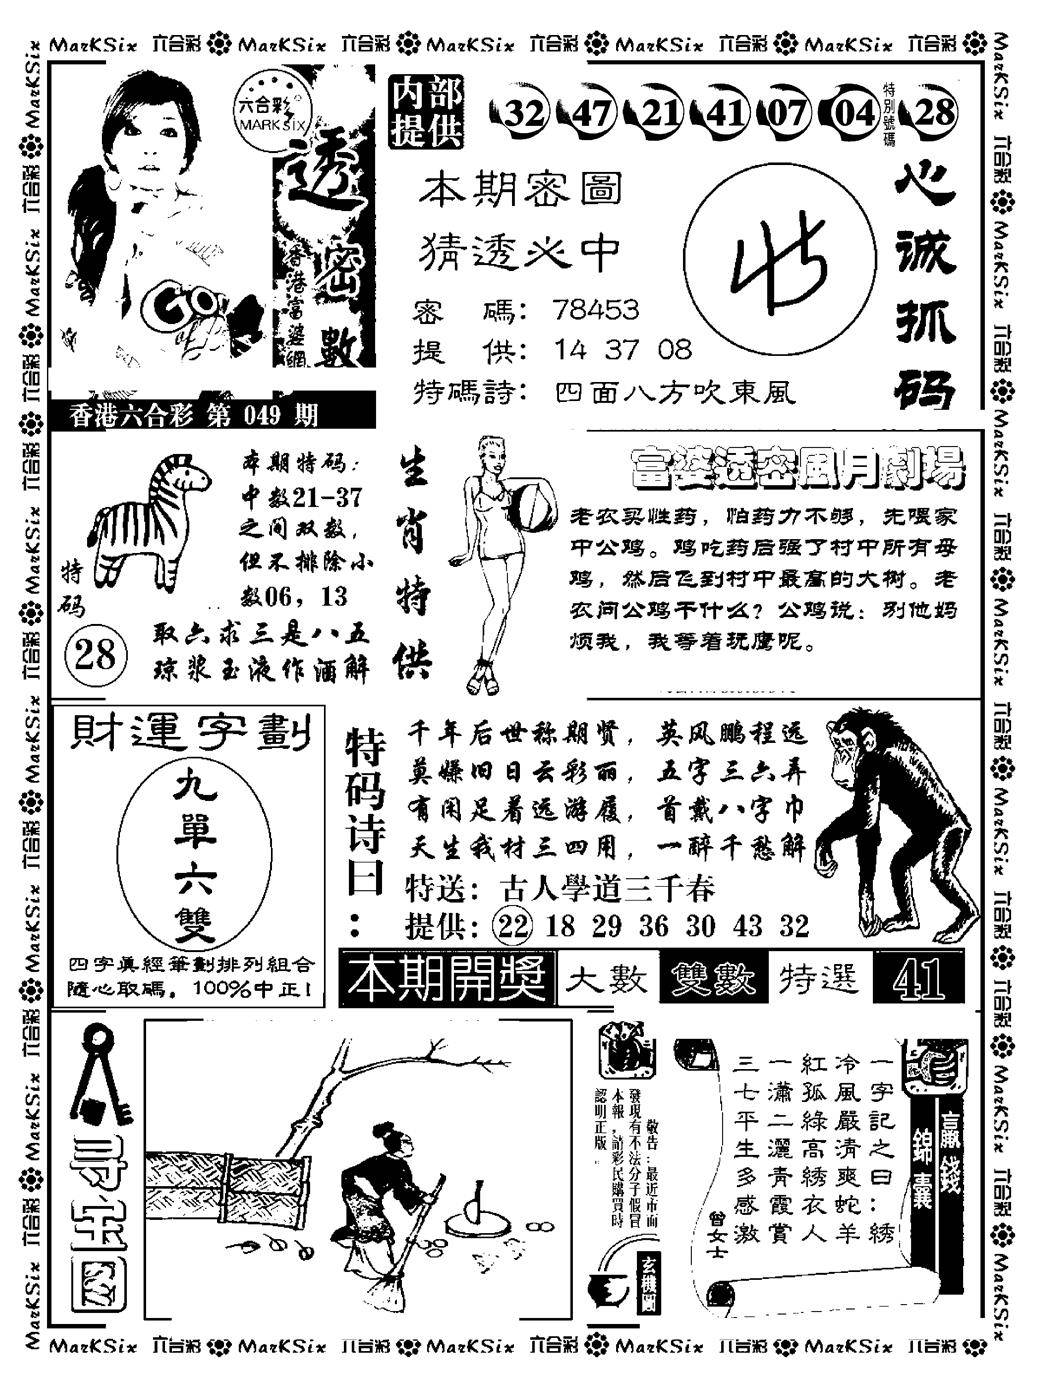 MarKSix 六合彩 MarKSix 六合彩 MarKSix 六合彩 MarKSix 六合彩 MarKSix 六合彩
六合彩
MARK SIX
透密數
香港富婆網
特码
香港六合彩 第 049 期
内部提供
32 47 21 41 07 04 特別號碼 28
本期密圖
猜透必中
密 碼：78453
提 供：14 37 08
特碼詩：四面八方吹東風
心诚抓码
本期特码：
中数21-37
之间双数，
但不排除小
数06，13
特码
28
取六求三是八五
琼浆玉液作酒解
生肖特供
富婆透密風月劇場
老农买性药，怕药力不够，先喂家
中公鸡。鸡吃药后强了村中所有母
鸡，然后飞到村中最高的大树。老
农问公鸡干什么？公鸡说：别他妈
烦我，我等着玩鹰呢。
財運字劃
九單六雙
四字真經筆劃排列組合
隨心取碼，100%中正！
特码诗曰：
千年后世称期贤，英风鹏程远
莫嫌旧日云彩丽，五字三六弄
有闲足着远游履，首戴八字巾
天生我材三四用，一醉千愁解
特送：古人學道三千春
提供：22 18 29 36 30 43 32
本期開獎 大數 雙數 特選 41
寻宝图
敬告：最近市面
發現有不法分子假冒
本報，請彩民購買時
認明正版。
玄機圖
贏錢錦囊
一字記之曰：綉
冷風嚴清爽蛇羊
紅孤綠高綉衣人
一瀟二灑青霞賞
三七平生多感激
曾女士
MarKSix 六合彩 MarKSix 六合彩 MarKSix 六合彩 MarKSix 六合彩 MarKSix 六合彩